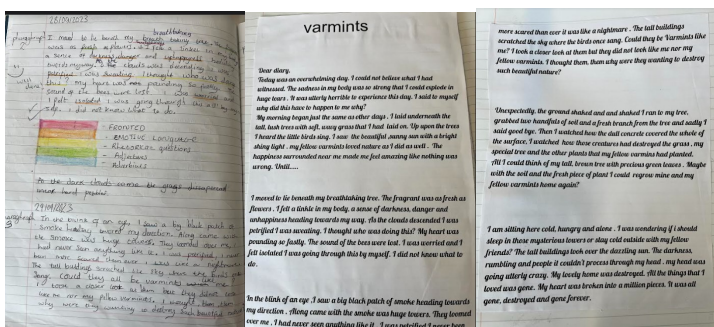 28/09/2023
breathtaking
paragraph
I moved to lie beneath my
was as fresh as flowers. I felt a tinkle in my
a sense of darkness danger and unhappiness
towards my way. As the clouds descended I was
petrified I was sweating. I thought who was doing
this? My heart was pounding so fastly.
sound of the bees were lost. I was worried and
I felt isolated I was going through this with by my
self. I did not know what to do.
- FRONTED
- EMOTIVE LANGUAGE
- Rhetorical questions
- Adjectives
- Adverbials
As the dark clouds came the grass disappeared
29/09/2023
paragraph 3
In the blink of an eye, I saw a big black patch of
smoke heading toward my direction. Along came with
the smoke was huge towers. They loomed over me. I
had never seen anything like it. I was petrified, I never
been more scared than ever it was like a nightmare.
The tall buildings scratched the sky where the birds once
sang. Could they be varmints like me.
I took a closer look at them but they did not look
like me nor my fellow varmints. I thought, them then
why were they wanting to destroy such beautiful nature
varmints
Dear diary,
Today was an overwhelming day. I could not believe what I had
witnessed. The sadness in my body was so strong that I could explode in
huge tears. It was utterly horrible to experience this day. I said to myself
why did this have to happen to me why?
My morning began just the same as other days . I laid underneath the
tall, lush trees with soft, wavy grass that I had laid on. Up upon the trees
I heard the little birds sing. I saw the beautiful ,sunny sun with a bright
shing light . my fellow varmints loved nature as I did as well . The
happiness surrounded near me made me feel amazing like nothing was
wrong. Until.....
I moved to lie beneath my breathtaking tree. The fragrant was as fresh as
flowers . I felt a tinkle in my body, a sense of darkness, danger and
unhappiness heading towards my way. As the clouds descended I was
petrified I was sweating. I thought who was doing this? My heart was
pounding so fastly. The sound of the bees were lost. I was worried and I
felt isolated I was going through this by myself. I did not know what to
do.
In the blink of an eye ,I saw a big black patch of smoke heading towards
my direction . Along came with the smoke was huge towers. They loomed
over me . I had never seen anything like it . I was petrified I never been
more scared than ever it was like a nightmare . The tall buildings
scratched the sky where the birds once sang. Could they be Varmints like
me? I took a closer look at them but they did not look like me nor my
fellow varmints. I thought them, them why were they wanting to destroy
such beautiful nature?
Unexpectedly, the ground shaked and and shaked I ran to my tree,
grabbed two handfuls of soil and a fresh branch from the tree and sadly I
said good bye. Then I watched how the dull concrete covered the whole of
the surface, I watched how those creatures had destroyed the grass , my
special tree and the other plants that my fellow varmins had planted.
All I could think of my tall, brown tree with precious green leaves . Maybe
with the soil and the fresh piece of plant I could regrow mine and my
fellow varmints home again?
I am sitting here cold, hungry and alone . I was wondering if i should
sleep in those mysterious towers or stay cold outside with my fellow
friends? The tall buildings took over the dazzling sun. The darkness,
rumbling and people it couldn't process through my head . my head was
going utterly crazy. My lovely home was destroyed. All the things that I
loved was gone. My heart was broken into a million pieces. It was all
gone, destroyed and gone forever.